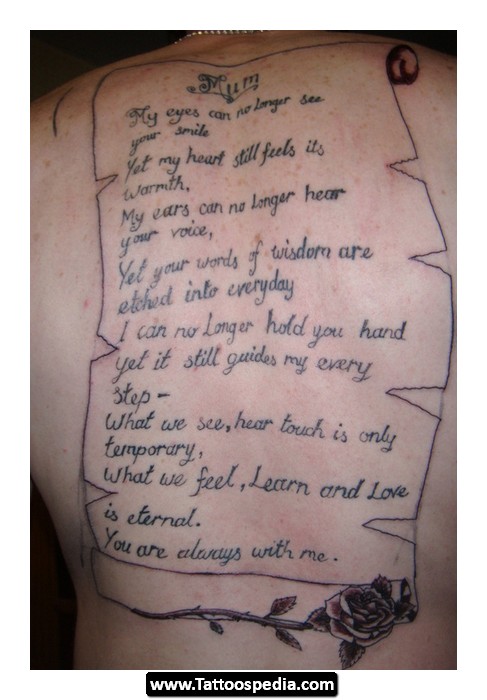 Mum
My eyes can no Longer see
your smile
Yet my heart still feels its
warmth,
My ears can no Longer hear
your voice,
Yet your words of wisdom are
etched into everyday
I can no Longer hold you hand
yet it still guides my every
step-
What we see, hear touch is only
temporary,
What we feel, Learn and Love
is eternal.
You are always with me.
www.Tattoospedia.com